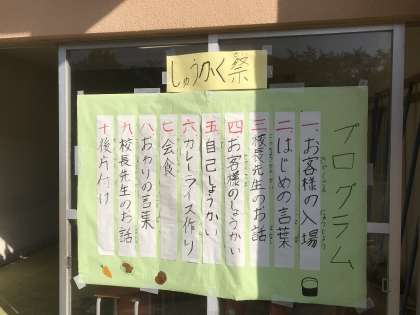 しゅうかく祭
プログラム
一、お客様の入場
二、はじめの言葉
三、校長先生のお話
四、お客様のしょうかい
五、自己しょうかい
六、カレーライス作り
七、会食
八、おわりの言葉
九、校長先生のお話
十、後片付け